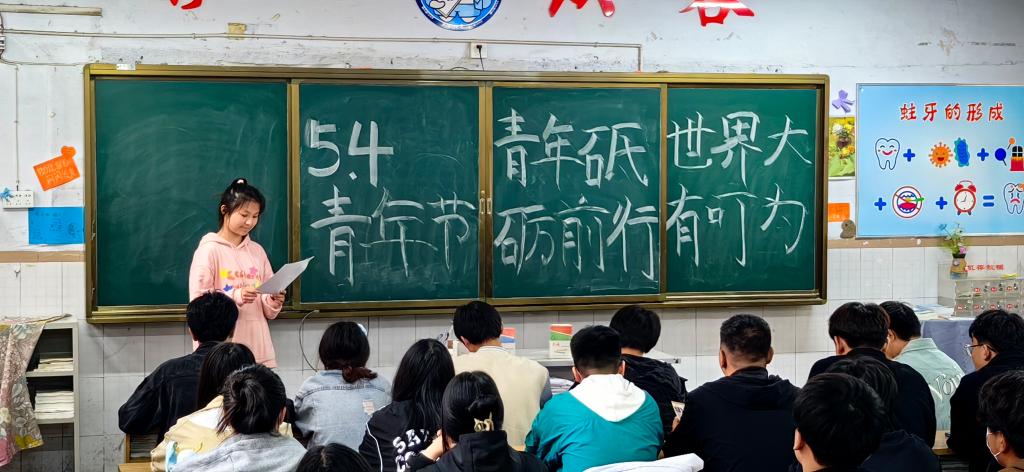 5.4
青年节
青年砥
砺前行
世界大
有可为
蛀牙的形成